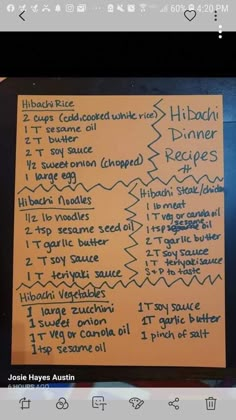 60% 4:20 PM
Hibachi Rice
2 cups (cold, cooked white rice)
1 T sesame oil
2 T butter
2 T soy sauce
1/2 sweet onion (chopped)
1 large egg
Hibachi
Dinner
Recipes
#
Hibachi Noodles
1/2 lb noodles
2 tsp sesame seed oil
1 T garlic butter
2 T soy sauce
1 T teriyaki sauce
Hibachi Steak/chicken
1 lb meat
1 T veg or canola oil
1 tsp sesame oil
2 T garlic butter
2 T soy sauce
1 T teriyaki sauce
S + P to taste
Hibachi Vegetables
1 large zucchini
1 sweet onion
1 T veg or canola oil
1 tsp sesame oil
1 T soy sauce
1T garlic butter
1 pinch of salt
Josie Hayes Austin
6 HOURS AGO